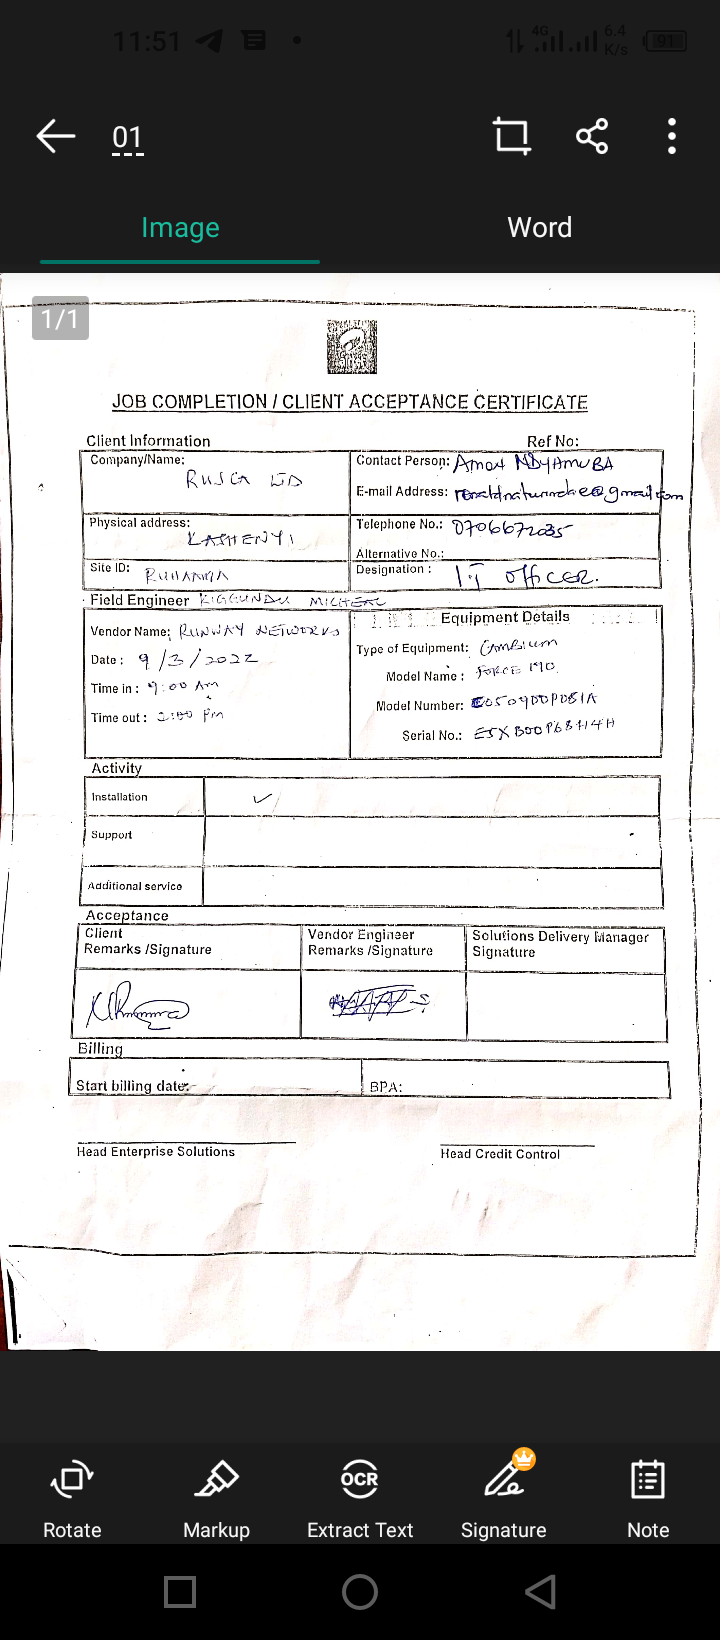 11:51
4G
6.4
K/s
91
01
Image
Word
1/1
JOB COMPLETION / CLIENT ACCEPTANCE CERTIFICATE
Client Information
Ref No:
Company/Name:
RUSCA LTD
Contact Person: Amon NDYAMUBA
E-mail Address: @gmail.com
Physical address:
KASHENYI
Telephone No.: 0706672035
Alternative No.:
Site ID: RUHAMA
Designation: I.T OFFICER.
Field Engineer KIGGUNDU MICHEAL
Vendor Name: RUNWAY NETWORKS
Date: 9/3/2022
Time in: 9:00 Am
Time out: 2:00 Pm
Equipment Details
Type of Equipment: Cambium
Model Name: FORCE 190
Model Number:
Serial No.:
Activity
Installation ✓
Support
Additional service
Acceptance
Client
Remarks /Signature
Vendor Engineer
Remarks /Signature
Solutions Delivery Manager
Signature
Billing
Start billing date:
BPA:
Head Enterprise Solutions
Head Credit Control
Rotate
Markup
OCR
Extract Text
Signature
Note